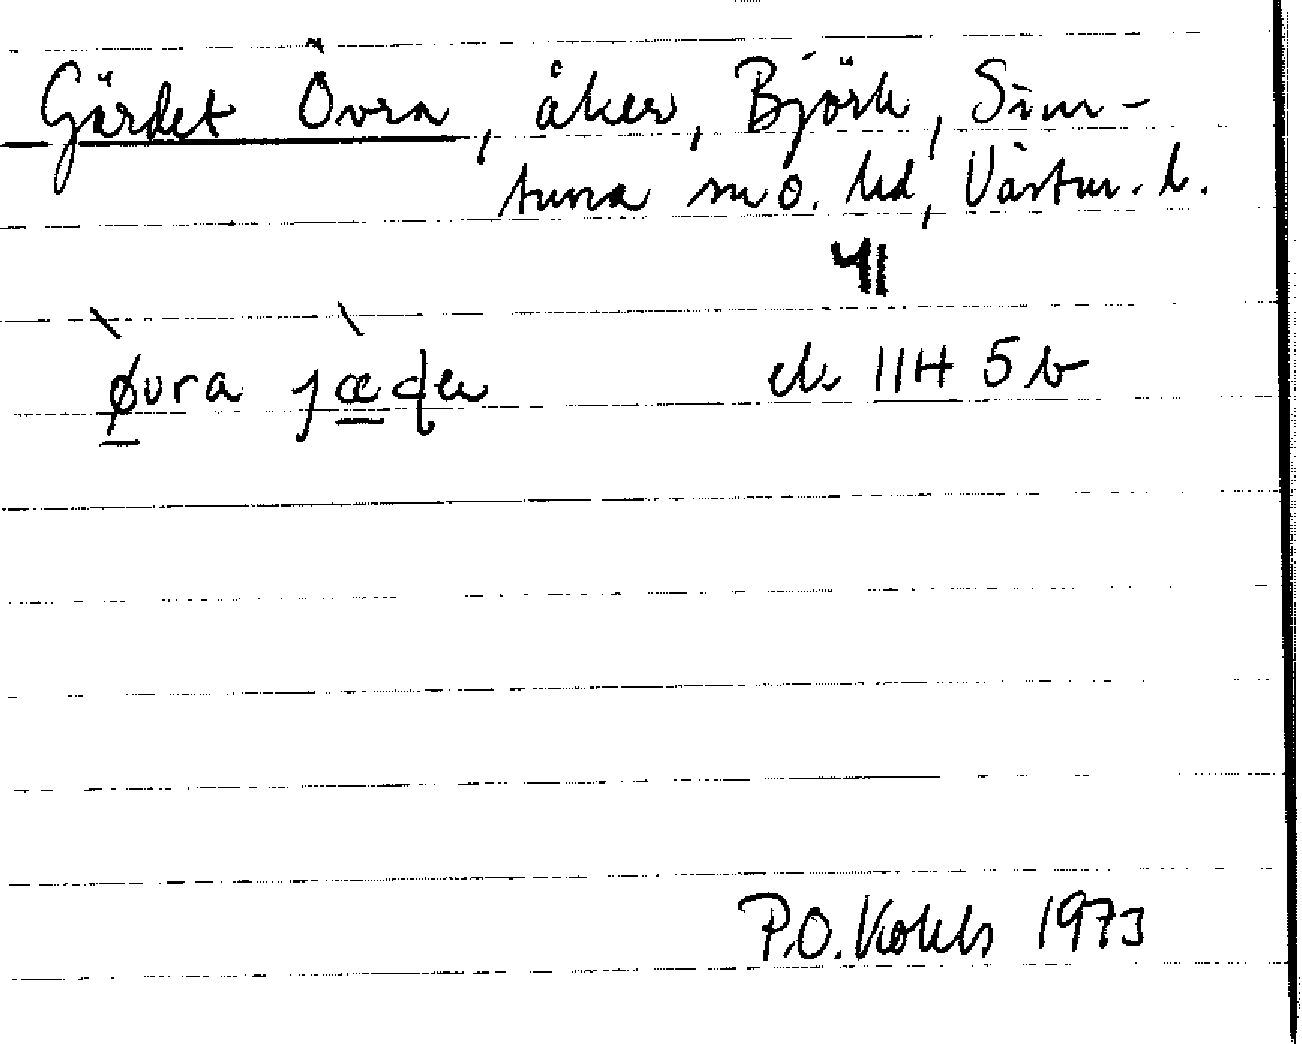 Gärdet Övra, åker, Björk, Sim-
tuna sn o. hd, Västm. l.
41
øvra jæḍe ek 11H 5b
P.O. Kohls 1973